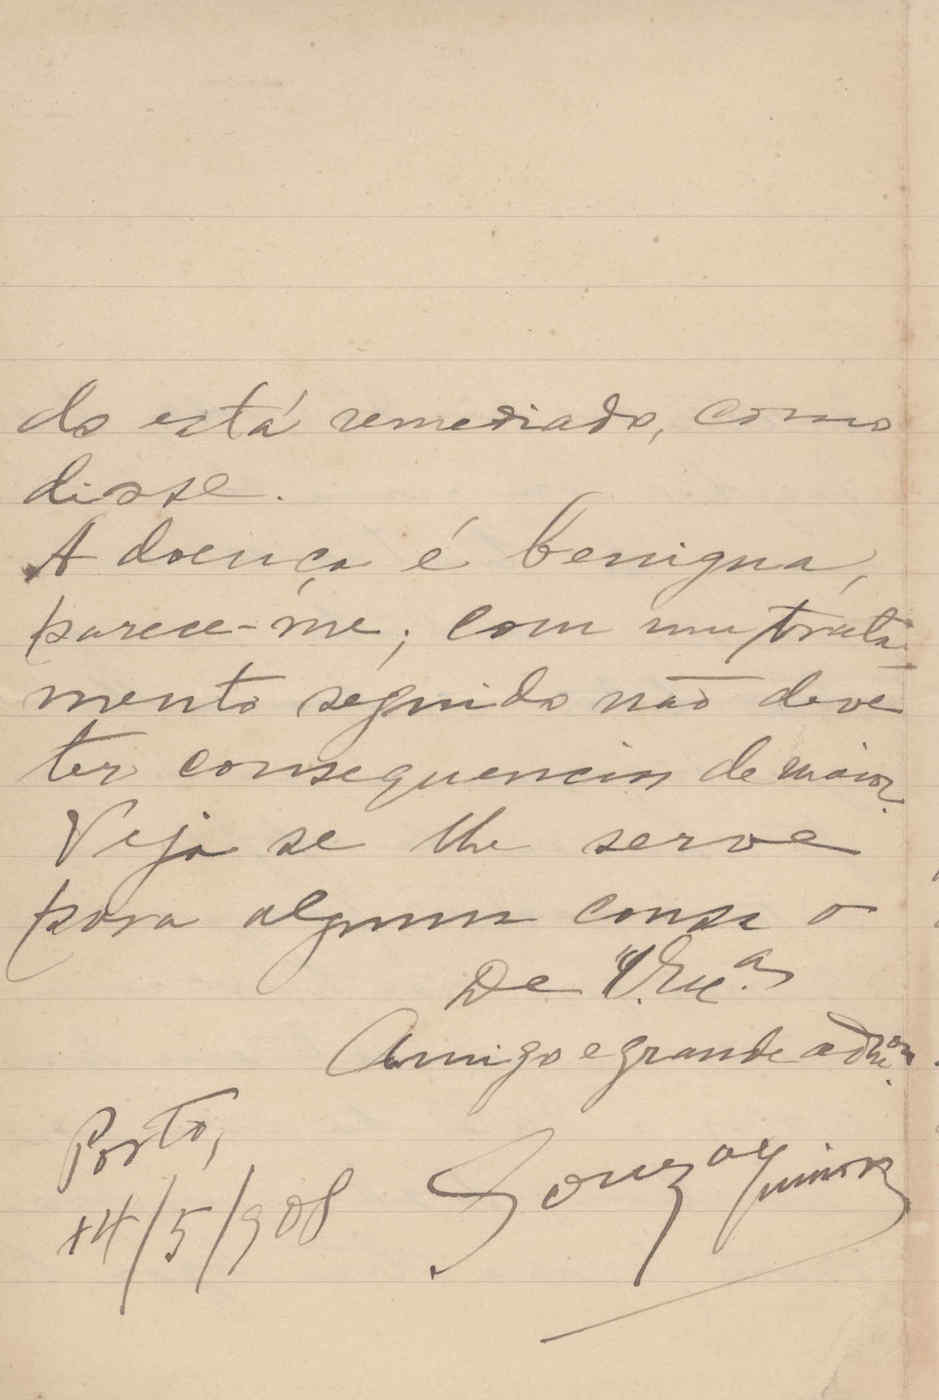 do está remediado, como
disse.
A doença é benigna,
parece-me; com um trata-
mento seguido não deve
ter consequencias de maior.
Veja se lhe serve
para alguma cousa o
De V. Ex.ª
Amigo e grande adm.or
Porto,
Souza Junior
14/5/908